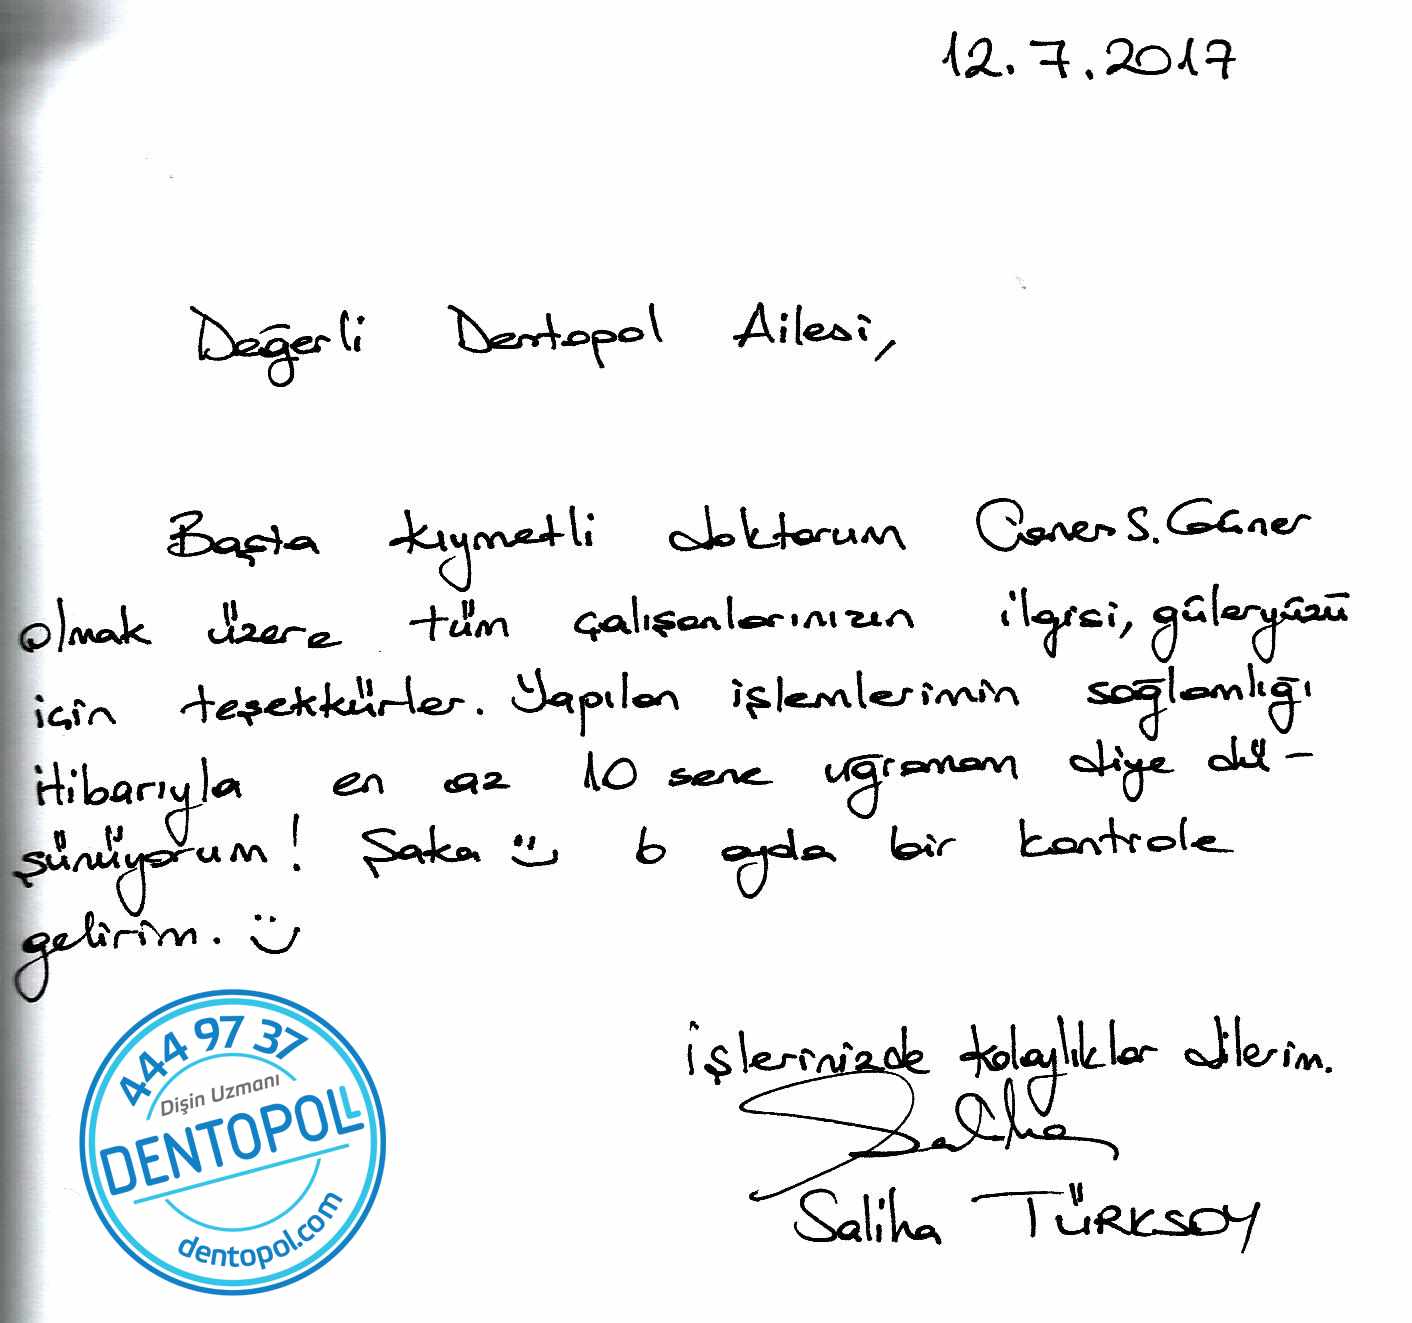 12.7.2017
Değerli Dentopol Ailesi,
Başta kıymetli doktorum S.
olmak üzere tüm çalışanlarınızın ilgisi, güleryüzü
için teşekkürler. Yapılan işlemlerimin sağlamlığı
itibarıyla en az 10 sene uğramam diye dü-
şünüyorum! Şaka 6 ayda bir kontrole
gelirim.
İşlerinizde kolaylıklar dilerim.
Saliha
Saliha TÜRKSOY
444 97 37
Dişin Uzmanı
DENTOPOL
dentopol.com